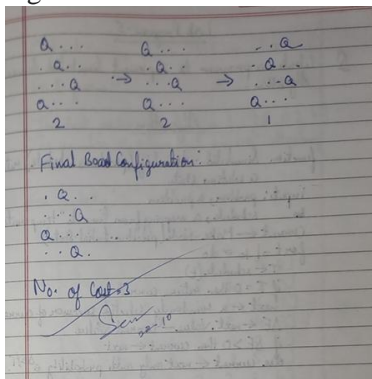 Q... Q... ..Q
.Q.. .Q.. .Q..
...Q → ...Q → ...Q
Q... Q... Q...
2 2 1
Final Board Configuration:
.Q..
...Q
Q... ..
..Q.
No. of Cost=3